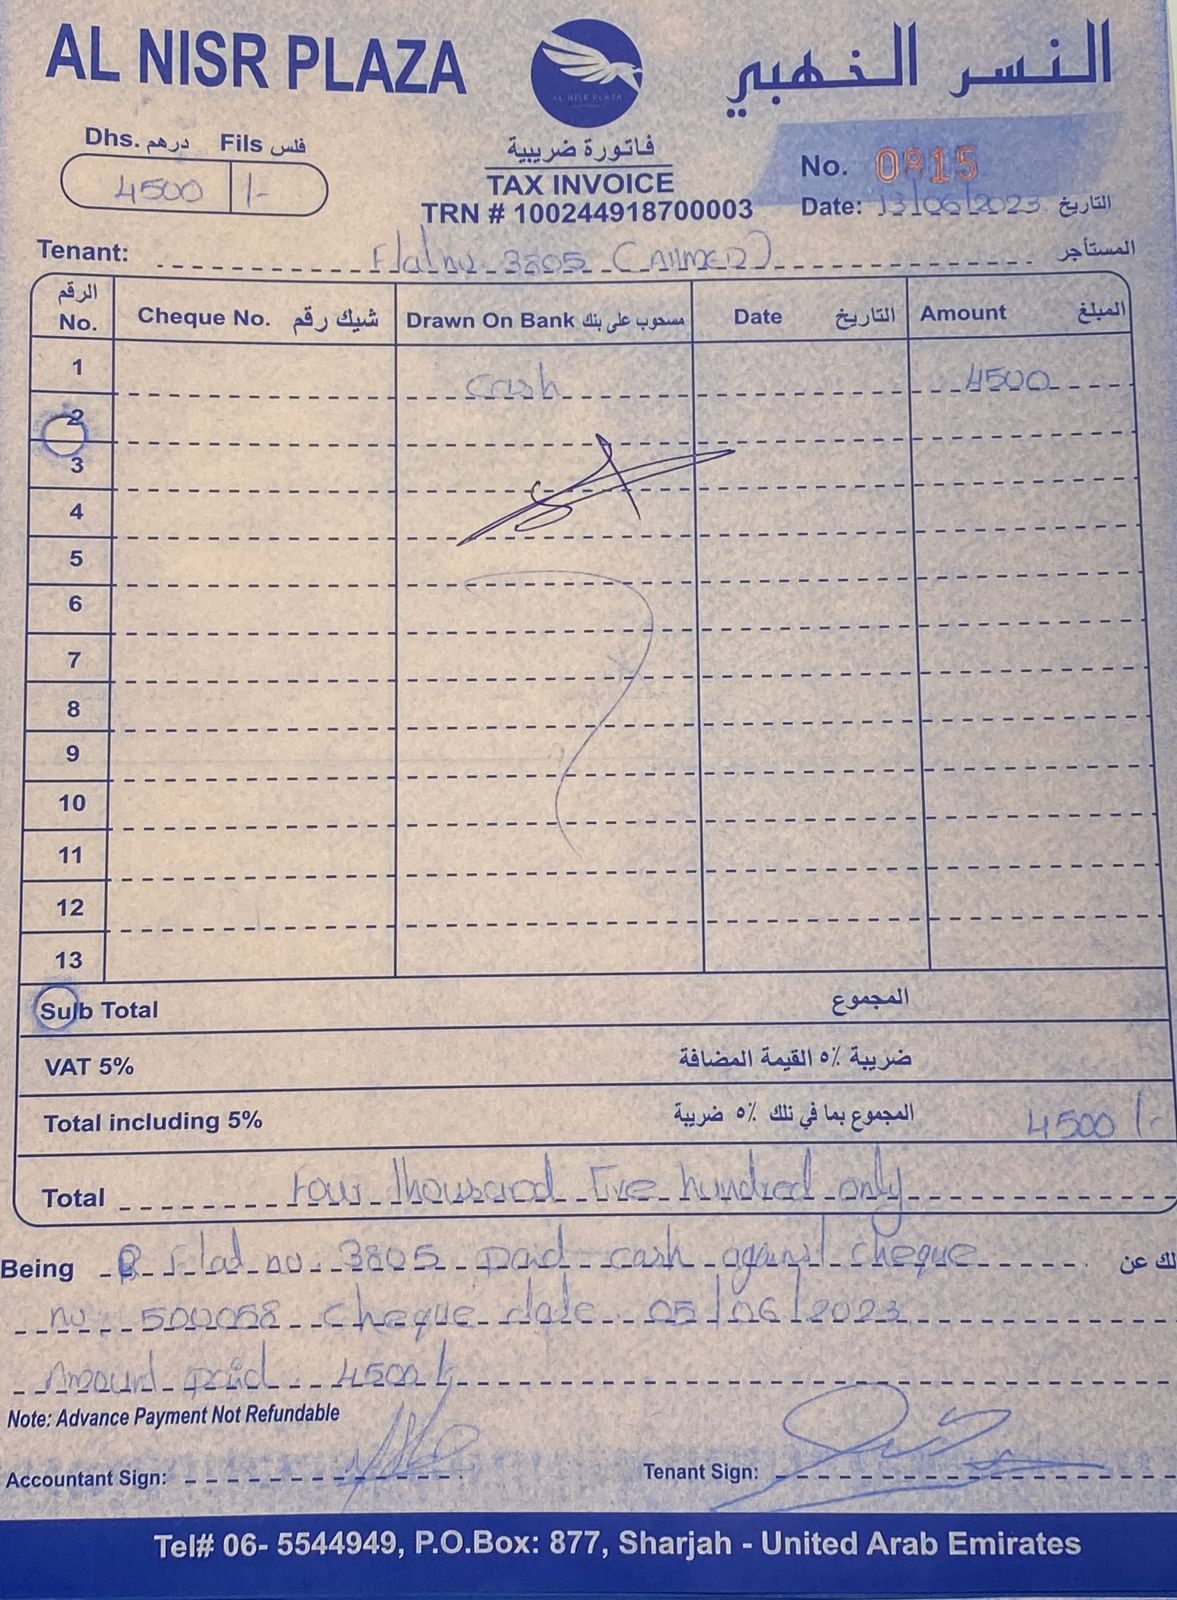 AL NISR PLAZA
النسر الذهبي
AL NISR PLAZA
Dhs. درهم Fils فلس
4500 /-
فاتورة ضريبية
TAX INVOICE
TRN # 100244918700003
No. 0815
Date: 13/06/2023 التاريخ
Tenant: Flat no. 3805 (AHMED) المستأجر
الرقم No. Cheque No. شيك رقم Drawn On Bank مسحوب على بنك Date التاريخ Amount المبلغ
1 Cash 4500
2
3
4
5
6
7
8
9
10
11
12
13
Sub Total المجموع
VAT 5% ضريبة ٥٪ القيمة المضافة
Total including 5% المجموع بما في ذلك ٥٪ ضريبة 4500 /-
Total Four thousand Five hundred only
Being Flat no. 3805 paid cash against cheque لك عن
no. 500058 cheque date 05/06/2023
Amount paid 4500/-
Note: Advance Payment Not Refundable
Accountant Sign: Tenant Sign:
Tel# 06- 5544949, P.O.Box: 877, Sharjah - United Arab Emirates